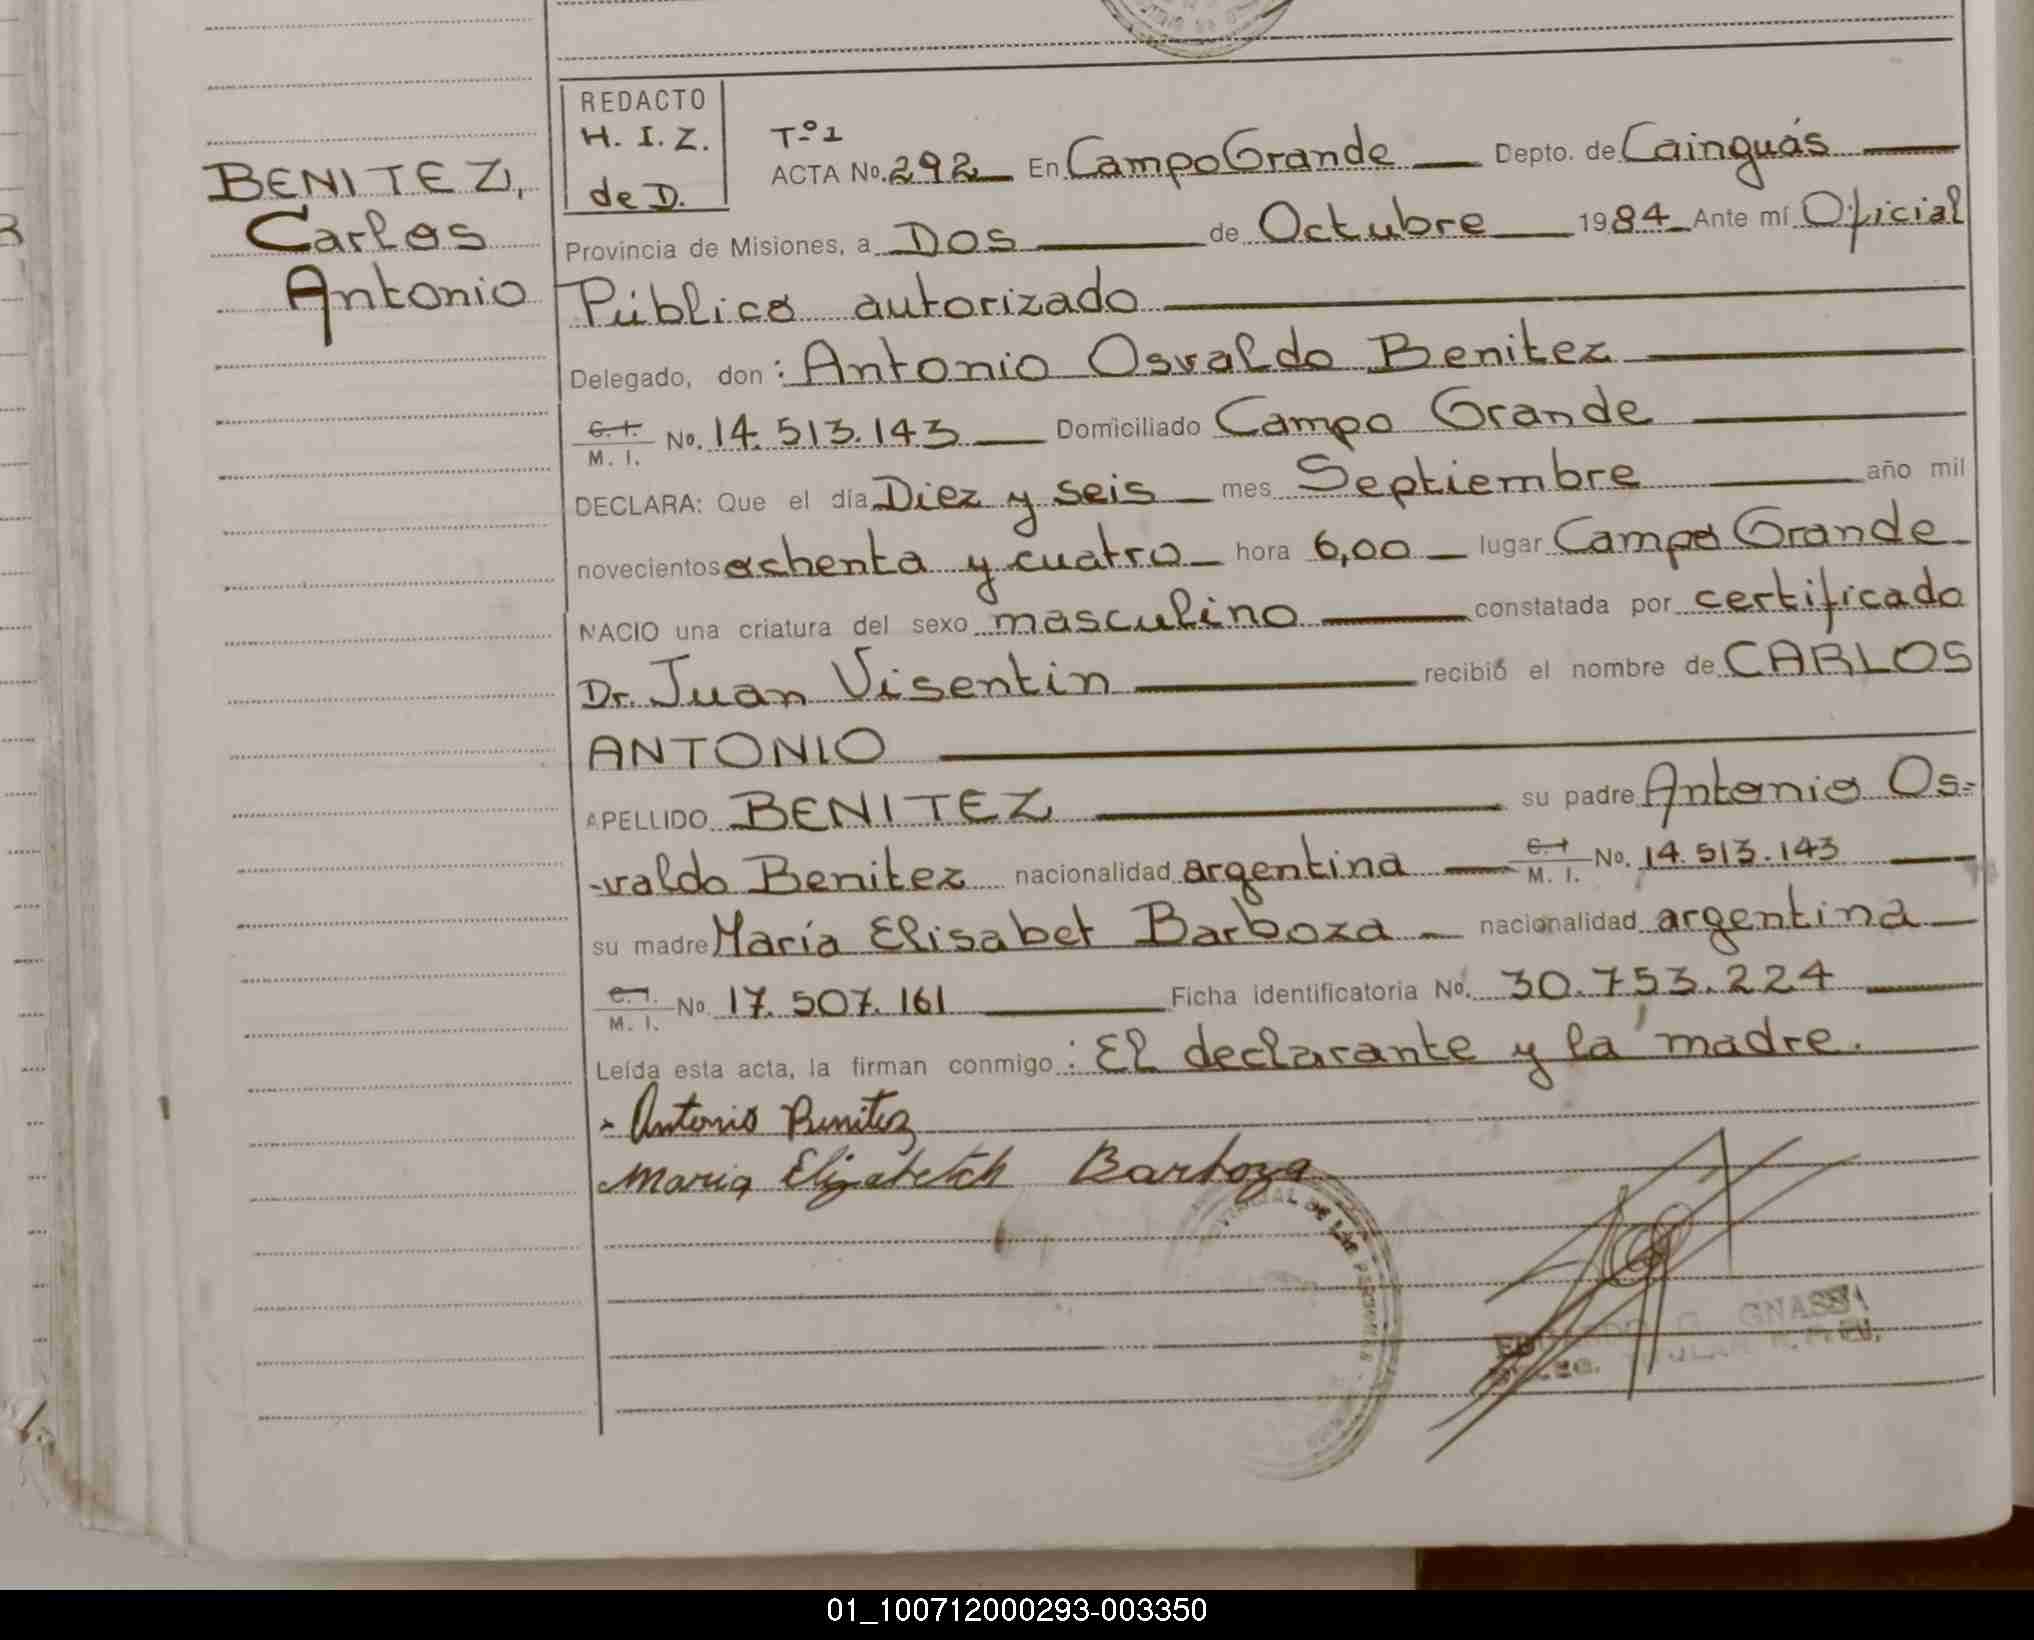 BENITEZ,
Carlos
Antonio
REDACTO
H. I. Z.
de D.
Tº 1
ACTA No. 292 En Campo Grande Depto. de Cainguás
Provincia de Misiones, a Dos de Octubre 1984 Ante mí Oficial
Público autorizado
Delegado, don: Antonio Osvaldo Benitez
C. I. / M. I. No. 14.513.143 Domiciliado Campo Grande
DECLARA: Que el día Diez y seis mes Septiembre año mil
novecientos ochenta y cuatro hora 6,00 lugar Campo Grande
NACIO una criatura del sexo masculino constatada por certificado
Dr. Juan Visentin recibió el nombre de CARLOS
ANTONIO
APELLIDO BENITEZ su padre Antonio Os-
-valdo Benitez nacionalidad argentina C. I. / M. I. No. 14.513.143
su madre María Elisabet Barboza nacionalidad argentina
C. I. / M. I. No. 17.507.161 Ficha identificatoria No. 30.753.224
Leída esta acta, la firman conmigo: El declarante y la madre.
Antonio Benitez
Maria Elizabetch Barboza
GNASSI
01_100712000293-003350